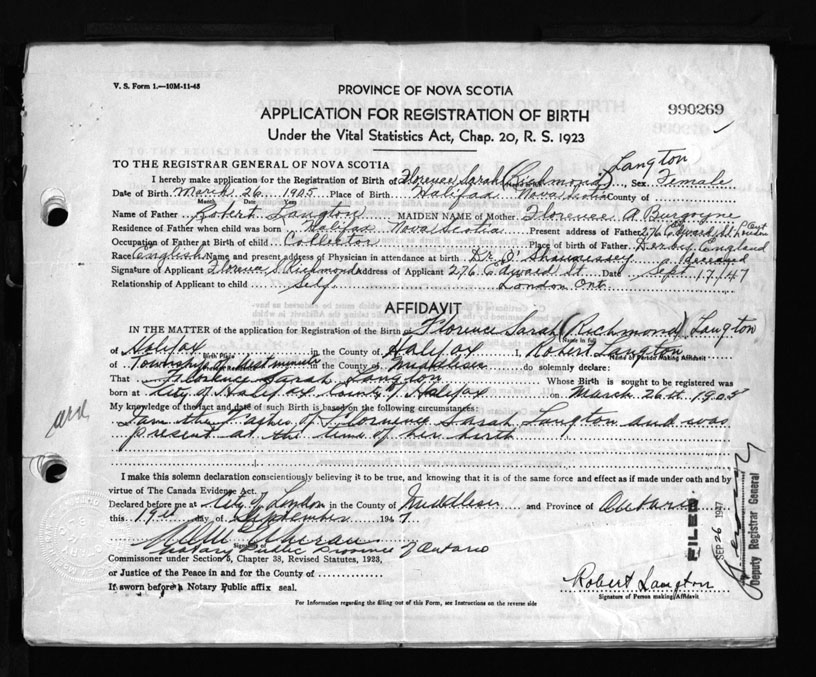 V. S. Form 1.—10M-11-45
PROVINCE OF NOVA SCOTIA
990269
APPLICATION FOR REGISTRATION OF BIRTH
Under the Vital Statistics Act, Chap. 20, R. S. 1923
TO THE REGISTRAR GENERAL OF NOVA SCOTIA
I hereby make application for the Registration of Birth of Florence Sarah (Richmond) Langton, Sex Female
Date of Birth March 26 1905 Place of Birth Halifax Nova Scotia County of
Month Day Year
Name of Father Robert Langton MAIDEN NAME of Mother Florence A. Burgoyne
Residence of Father when child was born Halifax Nova Scotia Present address of Father 276 Edward St London Ont
Occupation of Father at Birth of child Collector Place of birth of Father Derby England
Race English Name and present address of Physician in attendance at birth Dr. O'Shaunessey Deceased
Signature of Applicant Florence S. Richmond Address of Applicant 276 Edward St Date Sept 17/47
Relationship of Applicant to child Self London Ont.
AFFIDAVIT
IN THE MATTER of the application for Registration of the Birth of Florence Sarah (Richmond) Langton
Name in full
of Halifax in the County of Halifax I, Robert Langton
Birth Place Name of Person Making Affidavit
of Township of Westminster in the County of Middlesex do solemnly declare:
That Florence Sarah Langton Whose Birth is sought to be registered was
born at City of Halifax County of Halifax on March 26th 1905
My knowledge of the fact and date of such Birth is based on the following circumstances:
I am the Father of Florence Sarah Langton and was
present at the time of her birth
I make this solemn declaration conscientiously believing it to be true, and knowing that it is of the same force and effect as if made under oath and by
virtue of The Canada Evidence Act.
Declared before me at City of London in the County of Middlesex and Province of Ontario
this 19th day of September 1947
Notary Public Province of Ontario
Commissioner under Section 8, Chapter 38, Revised Statutes, 1923,
or Justice of the Peace in and for the County of
If sworn before a Notary Public affix seal.
Robert Langton
Signature of Person making Affidavit
For Information regarding the filling out of this Form, see Instructions on the reverse side
FILED
SEP 26 1947
Deputy Registrar General